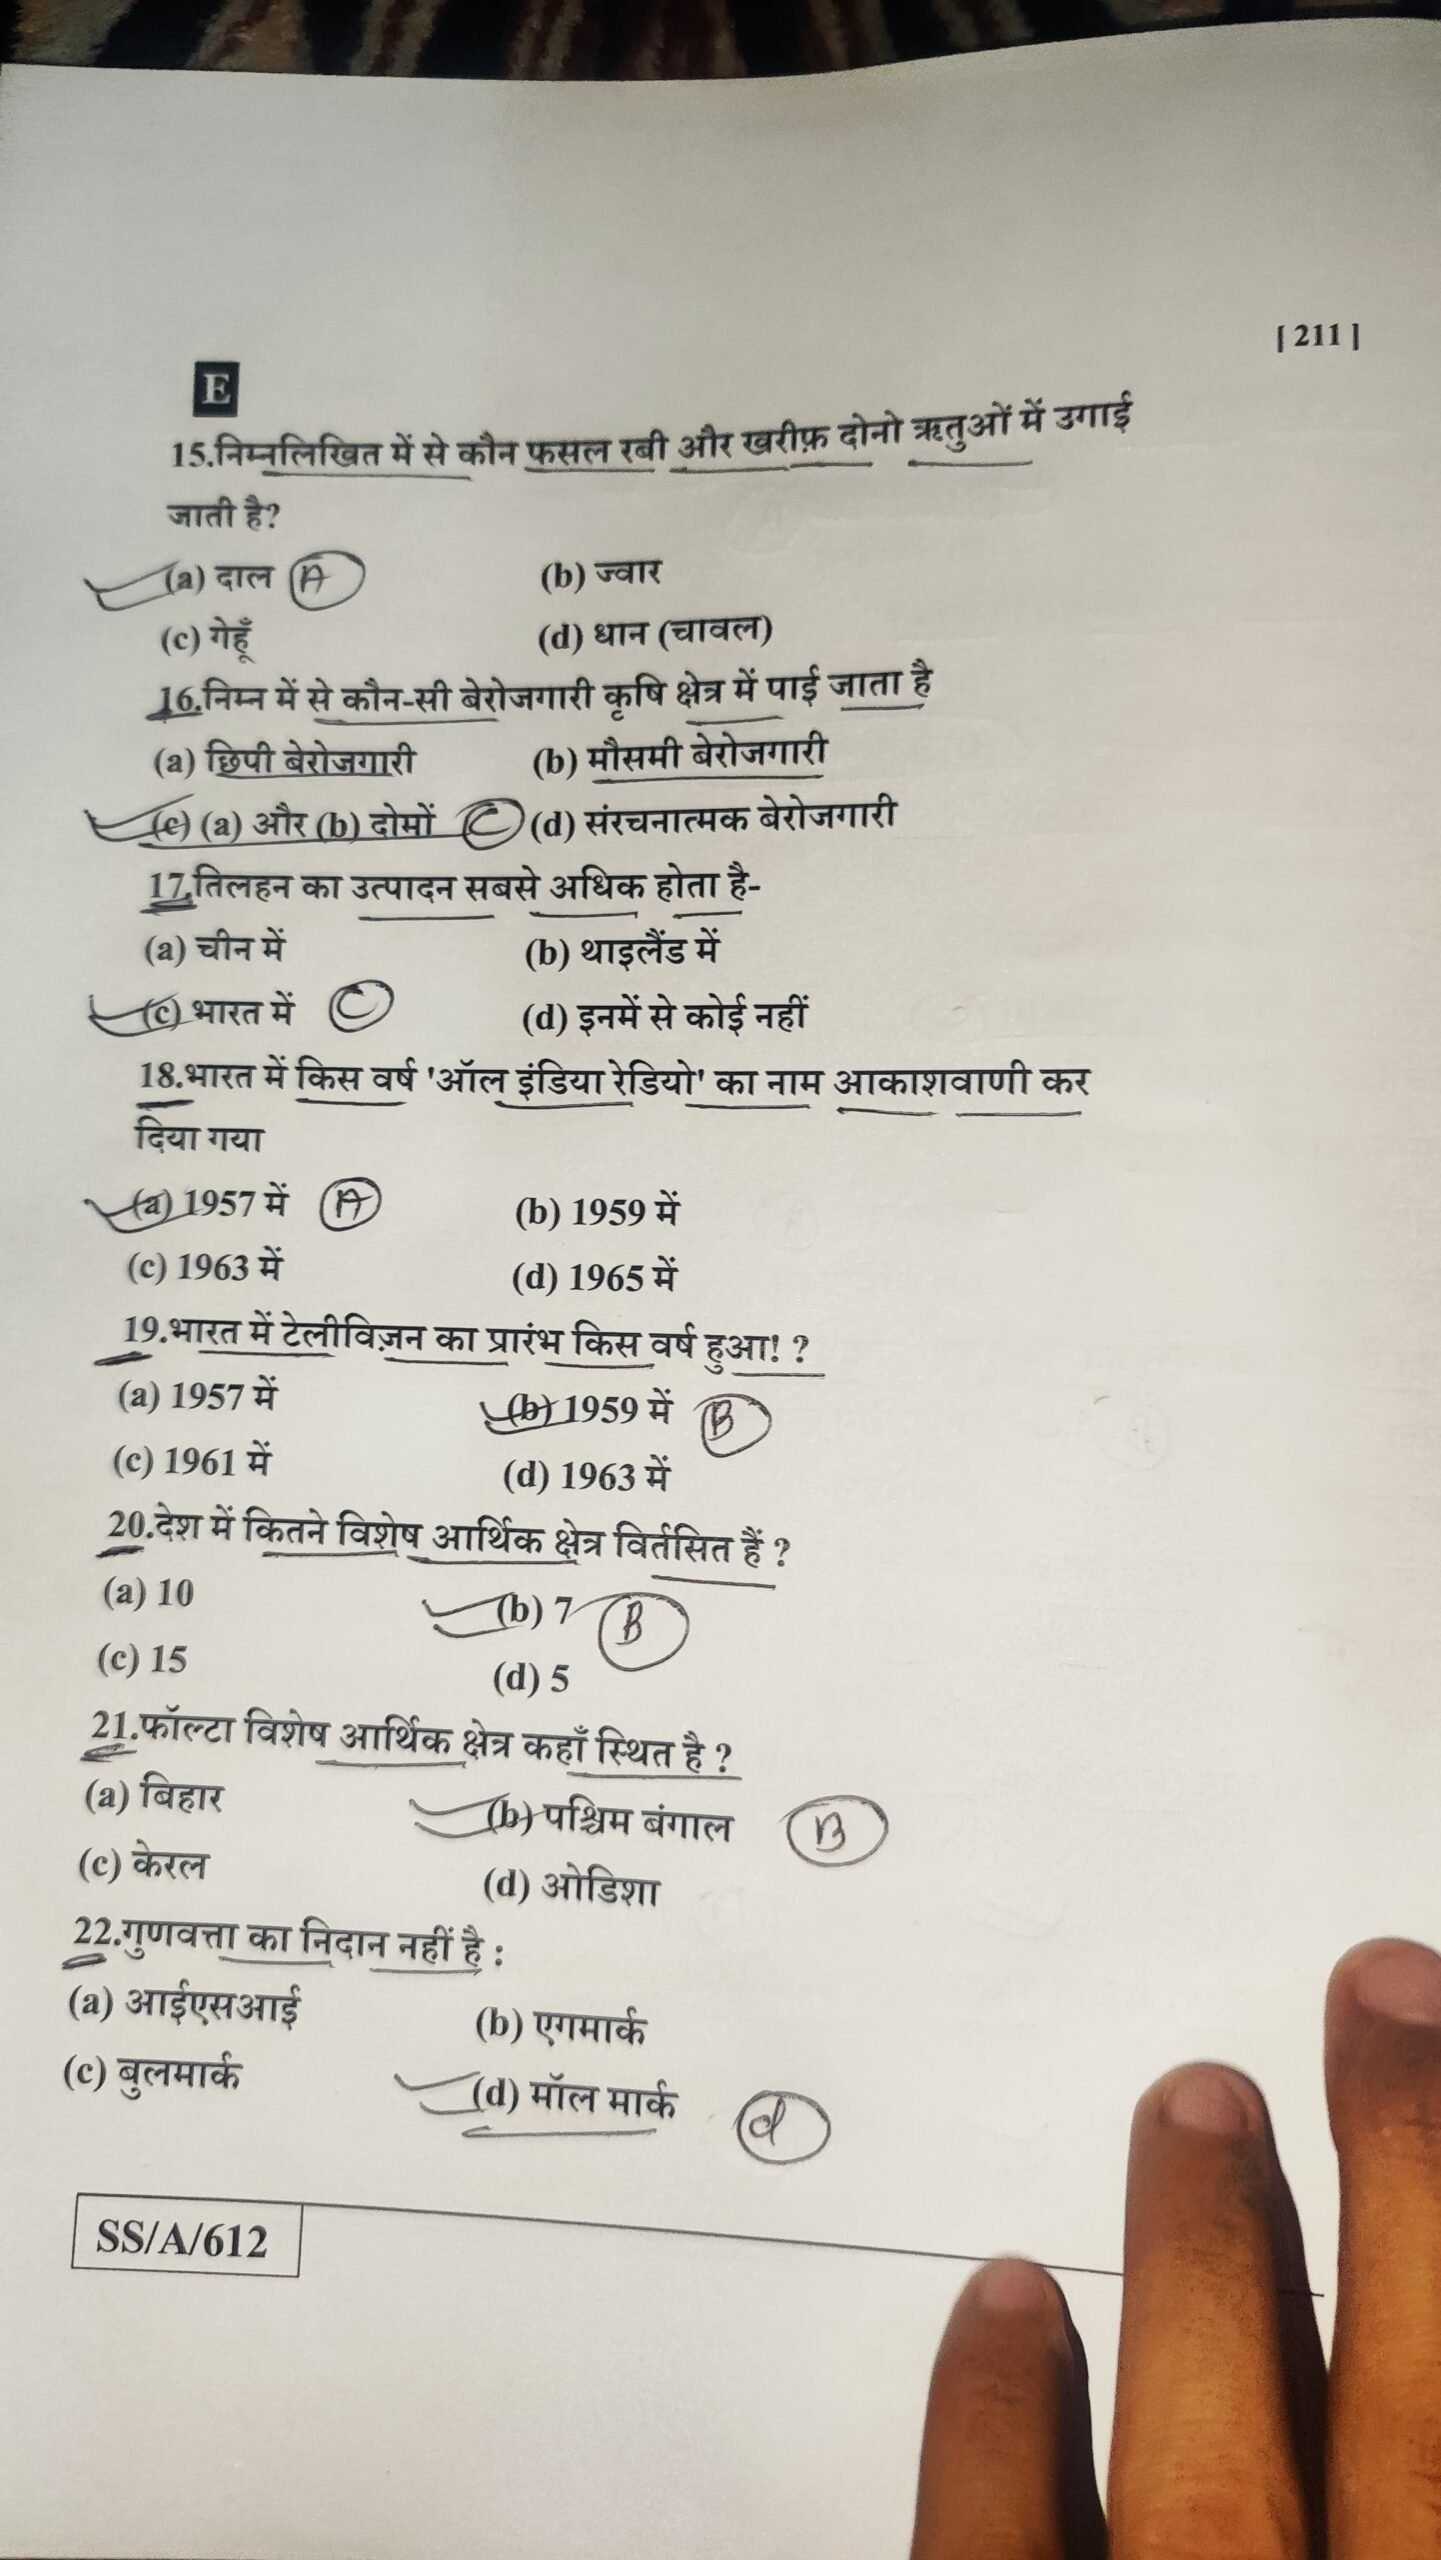 [ 211 ]
E
15.निम्नलिखित में से कौन फसल रबी और खरीफ़ दोनो ऋतुओं में उगाई
जाती है?
(a) दाल A (b) ज्वार
(c) गेहूँ (d) धान (चावल)
16.निम्न में से कौन-सी बेरोजगारी कृषि क्षेत्र में पाई जाता है
(a) छिपी बेरोजगारी (b) मौसमी बेरोजगारी
(c) (a) और (b) दोमों C (d) संरचनात्मक बेरोजगारी
17.तिलहन का उत्पादन सबसे अधिक होता है-
(a) चीन में (b) थाइलैंड में
(c) भारत में C (d) इनमें से कोई नहीं
18.भारत में किस वर्ष 'ऑल इंडिया रेडियो' का नाम आकाशवाणी कर
दिया गया
(a) 1957 में A (b) 1959 में
(c) 1963 में (d) 1965 में
19.भारत में टेलीविज़न का प्रारंभ किस वर्ष हुआ! ?
(a) 1957 में (b) 1959 में B
(c) 1961 में (d) 1963 में
20.देश में कितने विशेष आर्थिक क्षेत्र विर्तसित हैं ?
(a) 10 (b) 7 B
(c) 15 (d) 5
21.फॉल्टा विशेष आर्थिक क्षेत्र कहाँ स्थित है ?
(a) बिहार (b) पश्चिम बंगाल B
(c) केरल (d) ओडिशा
22.गुणवत्ता का निदान नहीं है :
(a) आईएसआई (b) एगमार्क
(c) बुलमार्क (d) मॉल मार्क d
SS/A/612